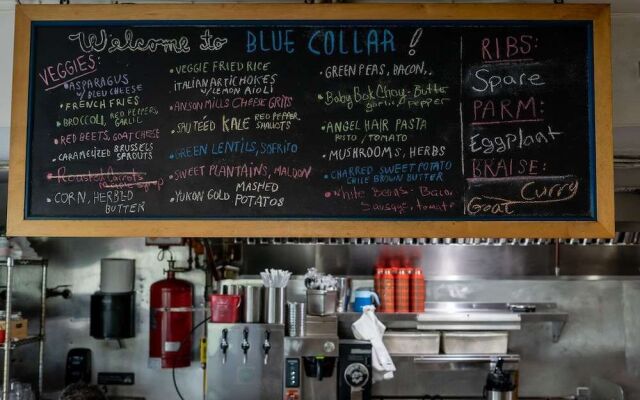 Welcome to BLUE COLLAR!
VEGGIES:
•ASPARAGUS
w/BLEU CHEESE
•FRENCH FRIES
•BROCCOLI, RED PEPPERS,
GARLIC
•RED BEETS, GOAT CHEESE
•CARAMELIZED BRUSSELS
SPROUTS
•Roasted Carrots
•CORN, HERBED
BUTTER
•VEGGIE FRIED RICE
ITALIAN ARTICHOKES
w/LEMON AIOLI
•ANSON MILLS CHEESE GRITS
•SAUTÉED KALE RED PEPPER
SHALLOTS
•GREEN LENTILS, SOFRITO
•SWEET PLANTAINS, MALDON
•YUKON GOLD MASHED
POTATOS
•GREEN PEAS, BACON,
•Baby Bok Choy-Butter
garlic, pepper
•ANGEL HAIR PASTA
PESTO / TOMATO
•MUSHROOMS, HERBS
•CHARRED SWEET POTATO
CHILE BROWN BUTTER
•White Beans-Bacon
Sausage, tomato
RIBS:
Spare
PARM:
Eggplant
BRAISE:
Curry
Goat